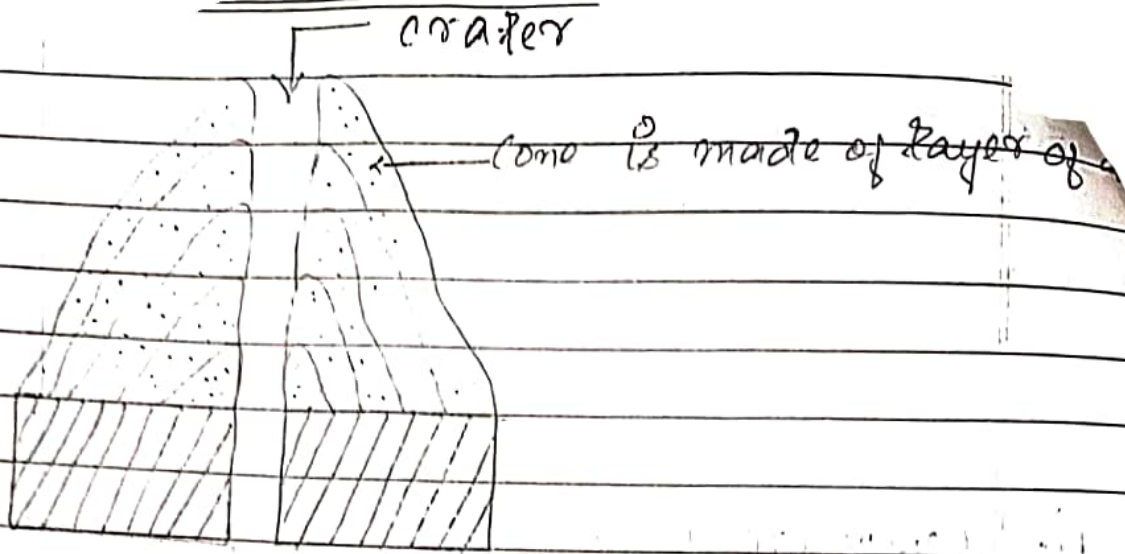 crater
Cone is made of layer of